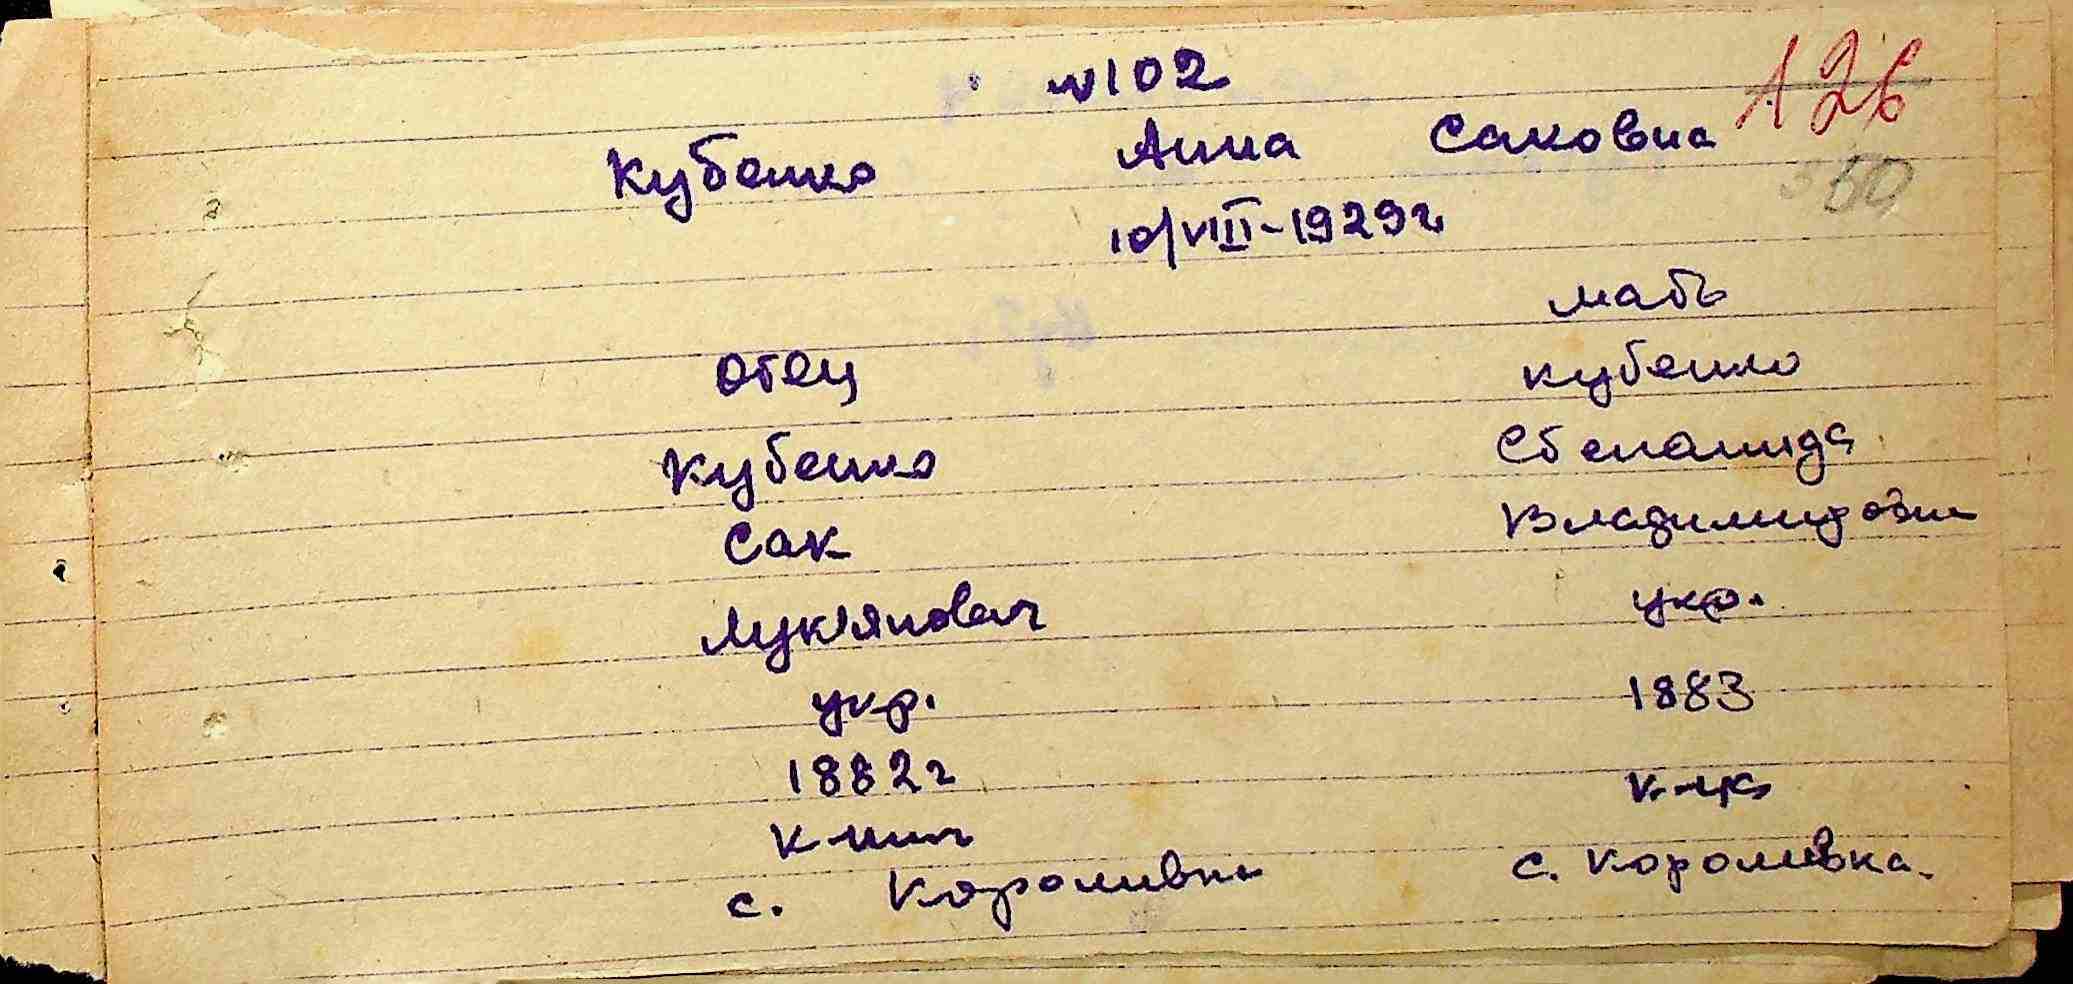 №102
126
Кубенко Анна Саковна
560
10/VIII-1929г
мать
отец
кубенко
Кубенко
Степанида
Сак
Владимировн
Лук'янович
укр.
укр.
1883
1882г
к-ца
с. Короливка
с. короливка.